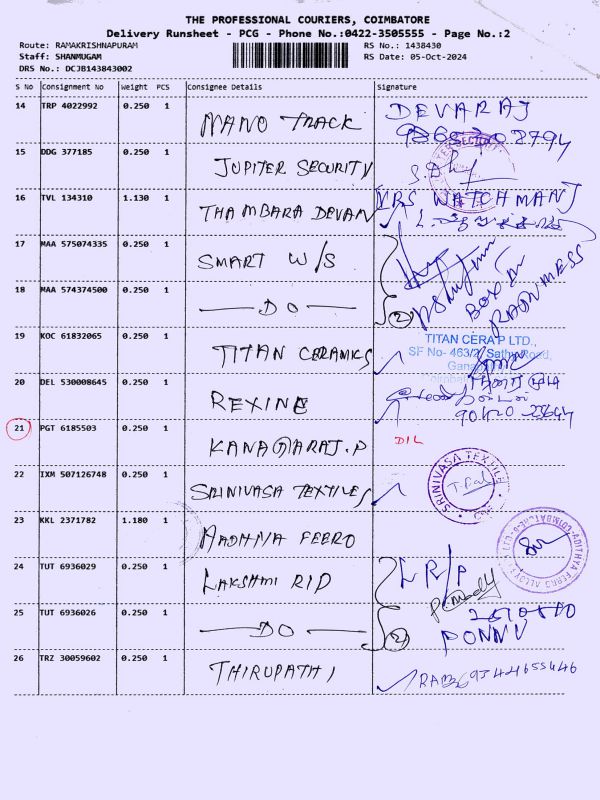 THE PROFESSIONAL COURIERS, COIMBATORE
Delivery Runsheet - PCG - Phone No.:0422-3505555 - Page No.:2
Route: RAMAKRISHNAPURAM
Staff: SHANMUGAM
DRS No.: DCJB143843002
RS No.: 1438430
RS Date: 05-Oct-2024
S No Consignment No Weight PCS Consignee Details Signature
14 TRP 4022992 0.250 1 MANO TRACK DEVARAJ
15 DDG 377185 0.250 1 JUPITER SECURITY
16 TVL 134310 1.130 1 THAMBARA DEVAN VRS WATCHMAN
17 MAA 575074335 0.250 1 SMART W/S
18 MAA 574374500 0.250 1 DO 2 BOX
19 KOC 61832065 0.250 1 TITAN CERAMICS
TITAN CERA P LTD.,
SF No- 463/2, Sathy Road,
20 DEL 530008645 0.250 1 REXINE
21 PGT 6185503 0.250 1 KANAGARAJ.P D/L
22 IXM 507126748 0.250 1 SRINIVASA TEXTILES SRINIVASA TEXTILE
23 KKL 2371782 1.180 1 AADHIYA FEERO
24 TUT 6936029 0.250 1 LAKSHMI RIP L R/P
25 TUT 6936026 0.250 1 DO 2 PONNU
26 TRZ 30059602 0.250 1 THIRUPATHI